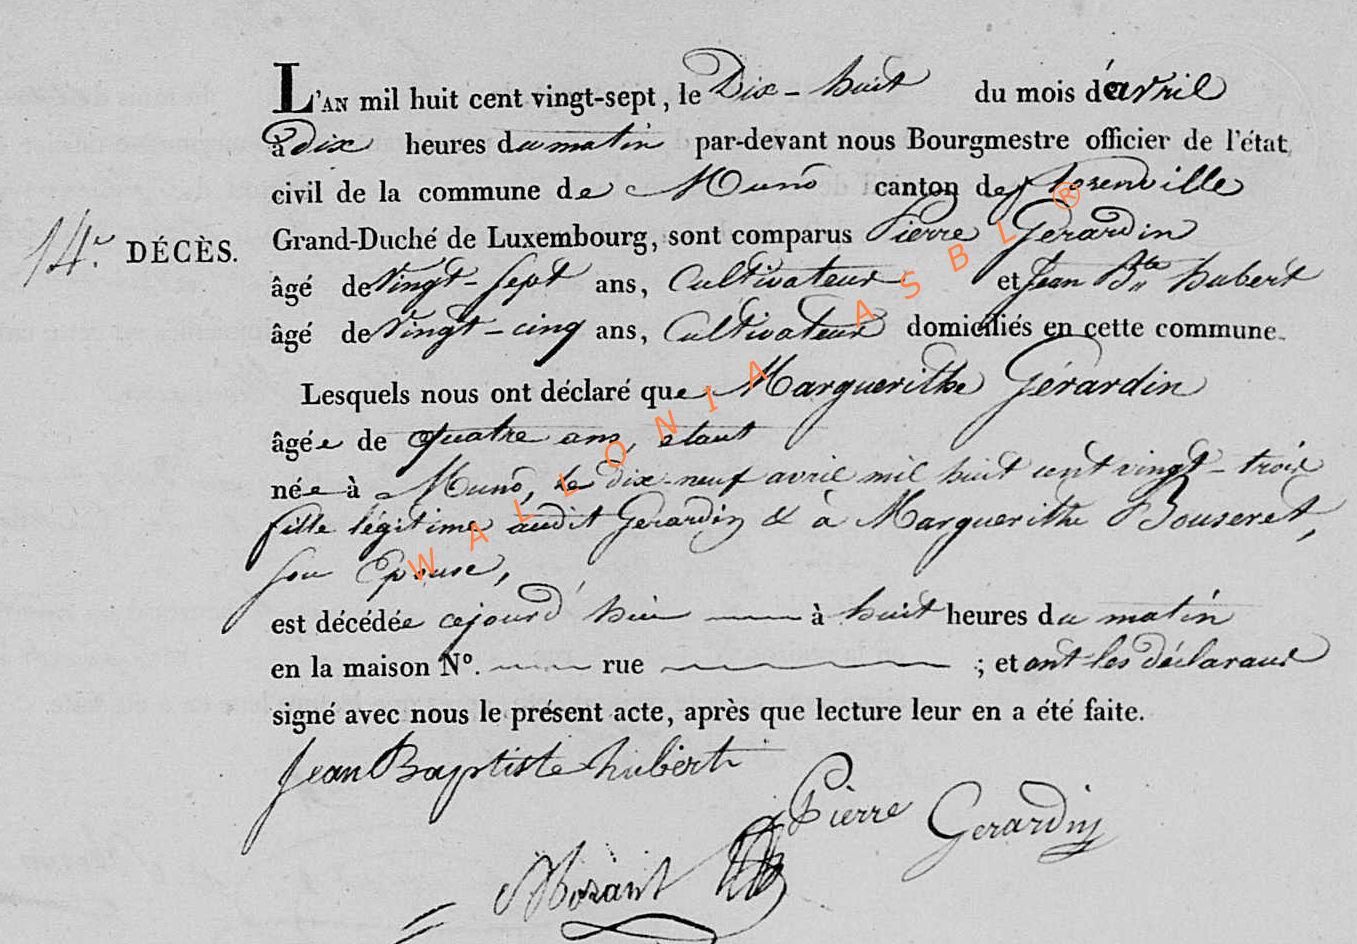 L'AN mil huit cent vingt-sept, le Dix-huit du mois d'avril
à dix heures du matin par-devant nous Bourgmestre officier de l'état
civil de la commune de Muno canton de florenville
Grand-Duché de Luxembourg, sont comparus Pierre Gerardin
14.e DÉCÈS.
âgé de Vingt-sept ans, Cultivateur et Jean Bte hubert
âgé de Vingt-cinq ans, Cultivateur domiciliés en cette commune.
Lesquels nous ont déclaré que Marguerithe Gérardin
âgée de quatre ans, etant
née à Muno, le dix-neuf avril mil huit cent vingt-trois
fille légitime audit Gerardin & à Marguerithe Bouseret,
son Epouse,
est décédée cejourd'hui à huit heures du matin
en la maison N°. rue ; et ont les déclarans
signé avec nous le présent acte, après que lecture leur en a été faite.
Jean Baptiste hubert
Pierre Gerardin
WALLONIA ASBL ®